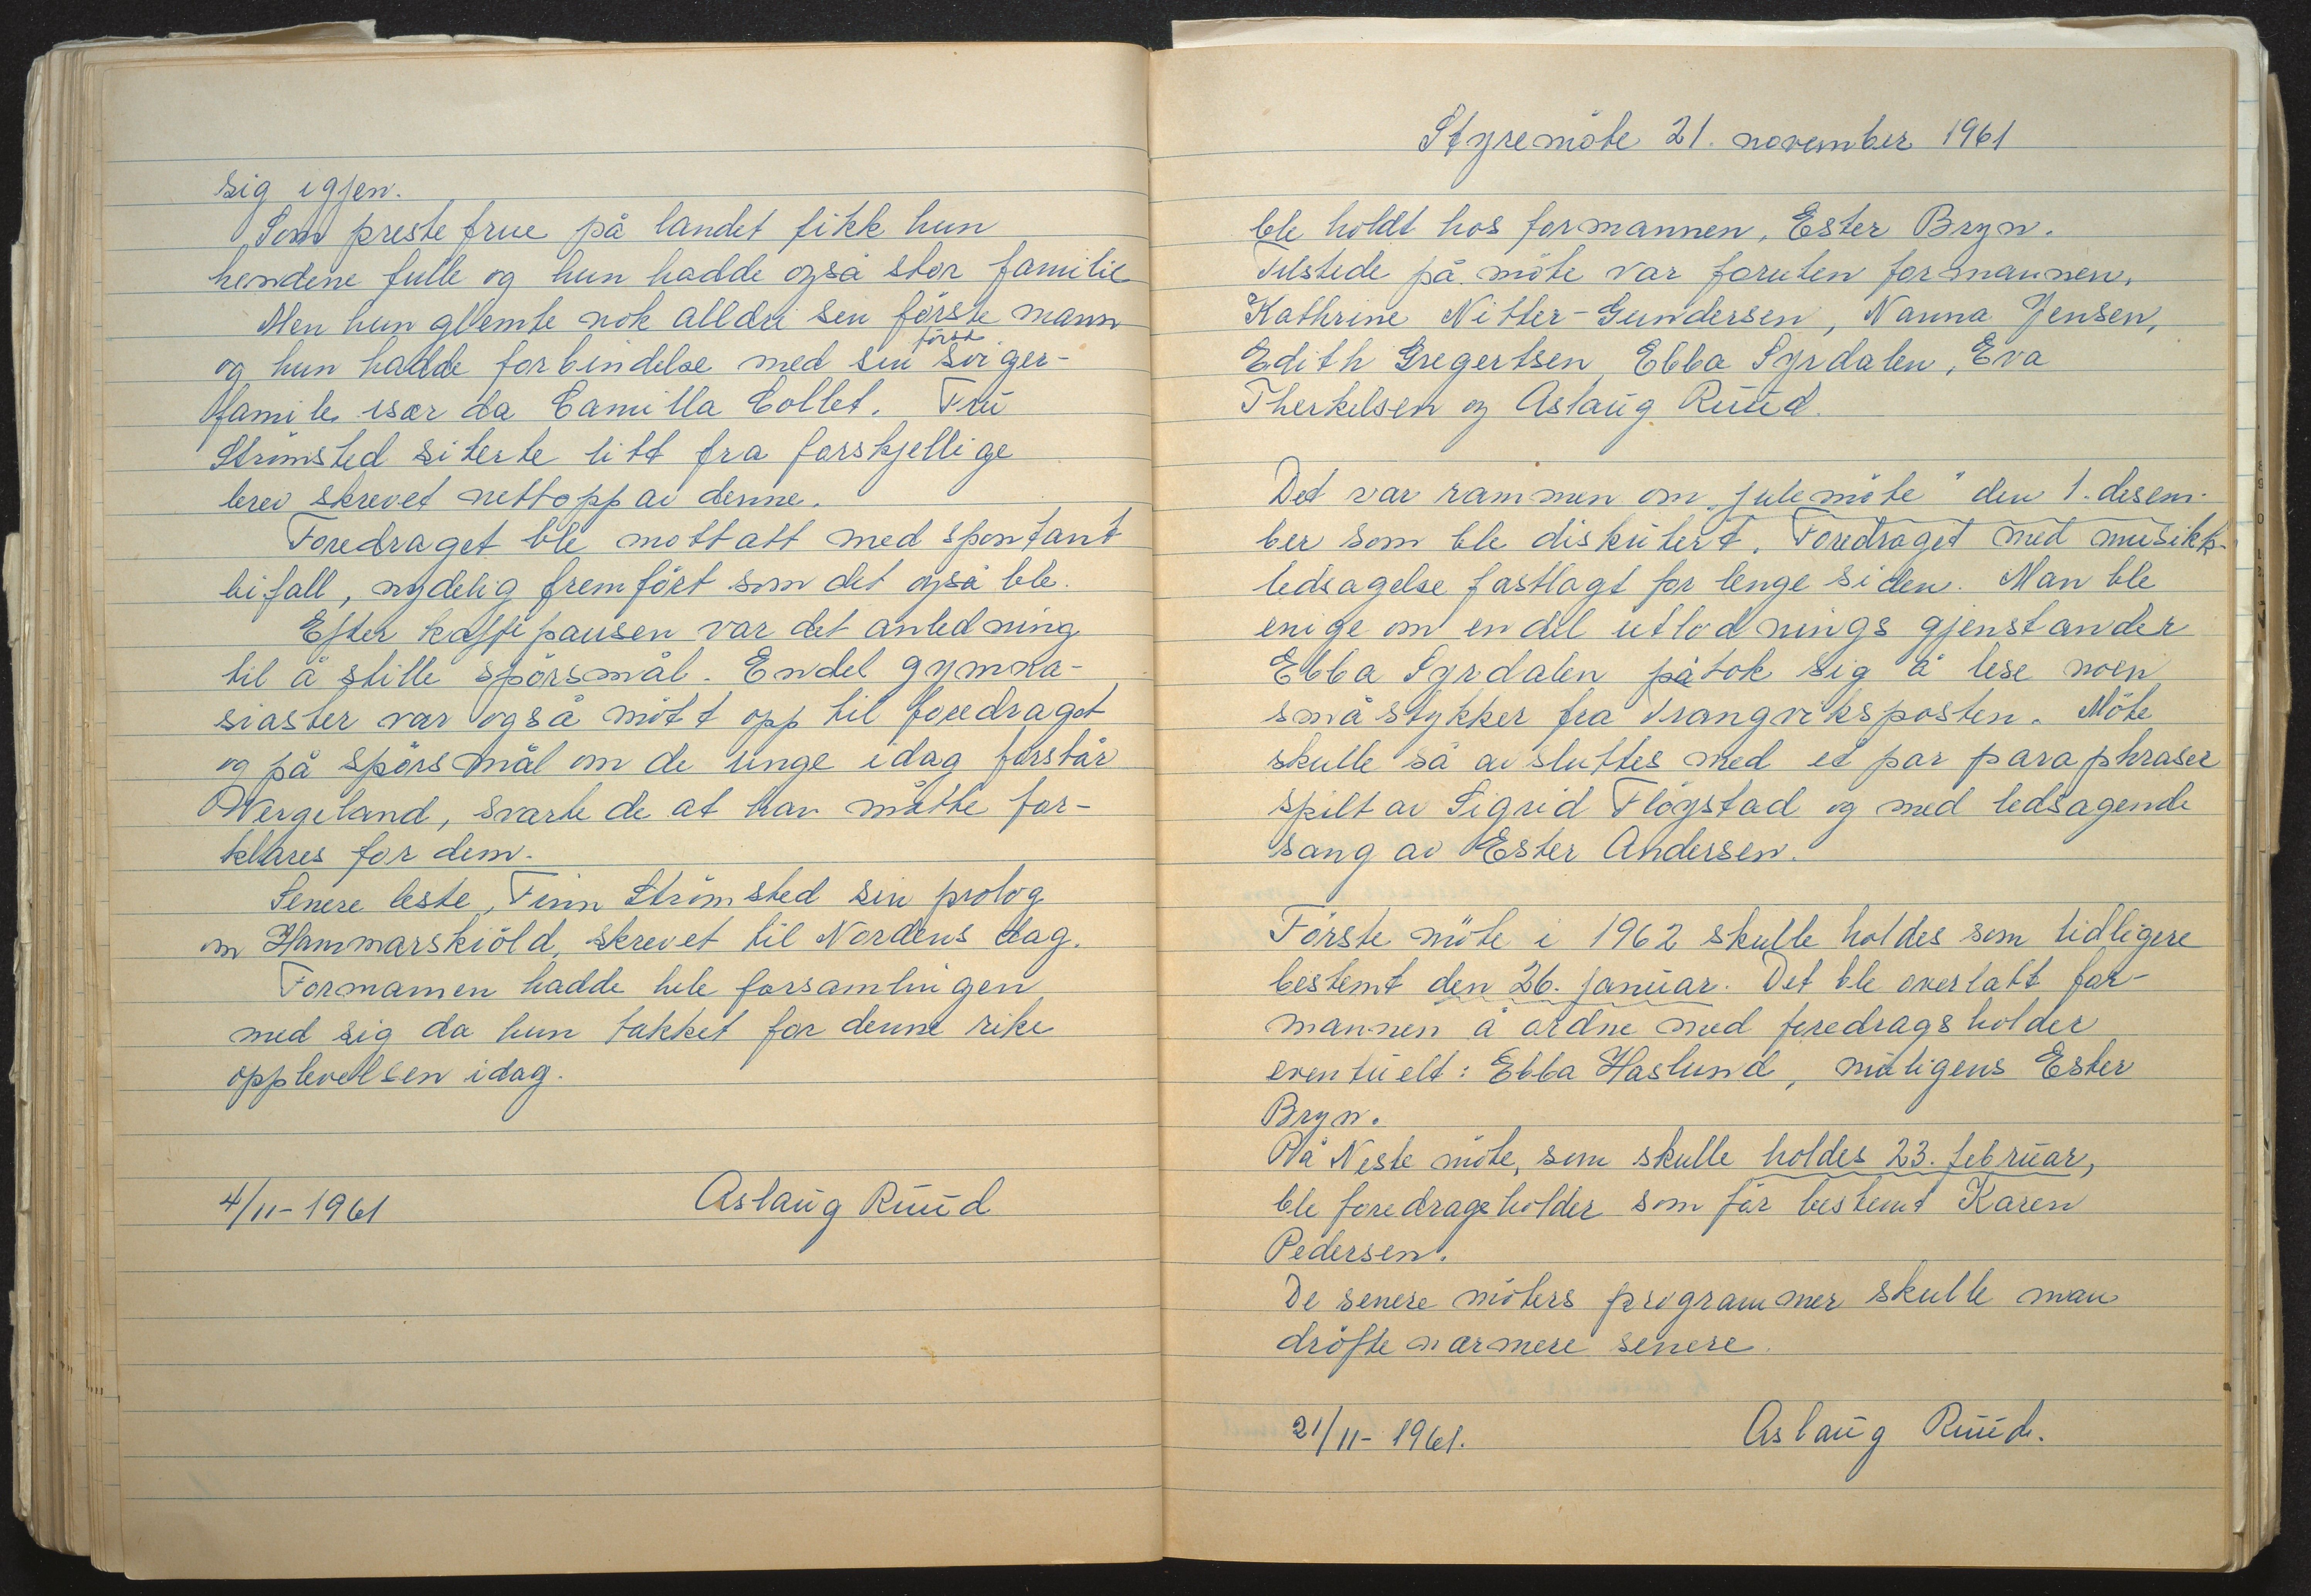 sig igjen.
Som prestefrue på landet fikk hun
hendene fulle og hun hadde også stor familie
Men hun glemte nok alldri sin förste mann
først
og hun hadde forbindelse med sin sviger-
famile især da Camilla Collet. Fru
Strömsted siterte litt fra forskjellige
brev skrevet nettopp av denne.
Foredraget ble mottatt med spontant
bifall, nydelig fremfört som det også ble.
Efter kaffepausen var det anledning
til å stille spörsmål. Endel gymna-
siaster var også mött opp til foredraget
og på spörsmål om de unge idag forstår
Wergeland, svarte de at han måtte for-
klares for dem.
Senere leste, Finn Strömsted sin prolog
om Hammarskiöld, skrevet til Nordens dag.
Formannen hadde hele forsamlingen
med sig da hun takket for denne rike
opplevelsen idag.
4/11-1961 Aslaug Ruud
Styremöte 21. november 1961
ble holdt hos formannen, Ester Bryn.
Tilstede på möte var foruten formannen,
Kathrine Nitter-Gundersen, Nanna Jensen,
Edith Gregertsen, Ebba Syrdalen, Eva
Therkelsen og Aslaug Ruud.
Det var rammen om „julemöte" den 1. desem-
ber som ble diskutert. Foredraget med musikk-
ledsagelse fastlagt for lenge siden. Man ble
enige om en del utlodnings gjenstander
Ebba Syrdalen påtok sig å lese noen
små stykker fra Trangviksposten. Möte
skulle så avsluttes med et par paraphraser
spilt av Sigrid Flögstad og med ledsagende
sang av Ester Andersen.
Förste möte i 1962 skulle holdes som tidligere
bestemt den 26. januar. Det ble overlatt for-
mannen å ordne med foredragsholder
eventuelt: Ebba Haslund, muligens Ester
Bryn.
På Neste möte, som skulle holdes 23. februar,
ble foredragsholder som før bestemt Karen
Pedersen.
De senere möters programmer skulle man
dröfte nærmere senere.
21/11-1961. Aslaug Ruud.